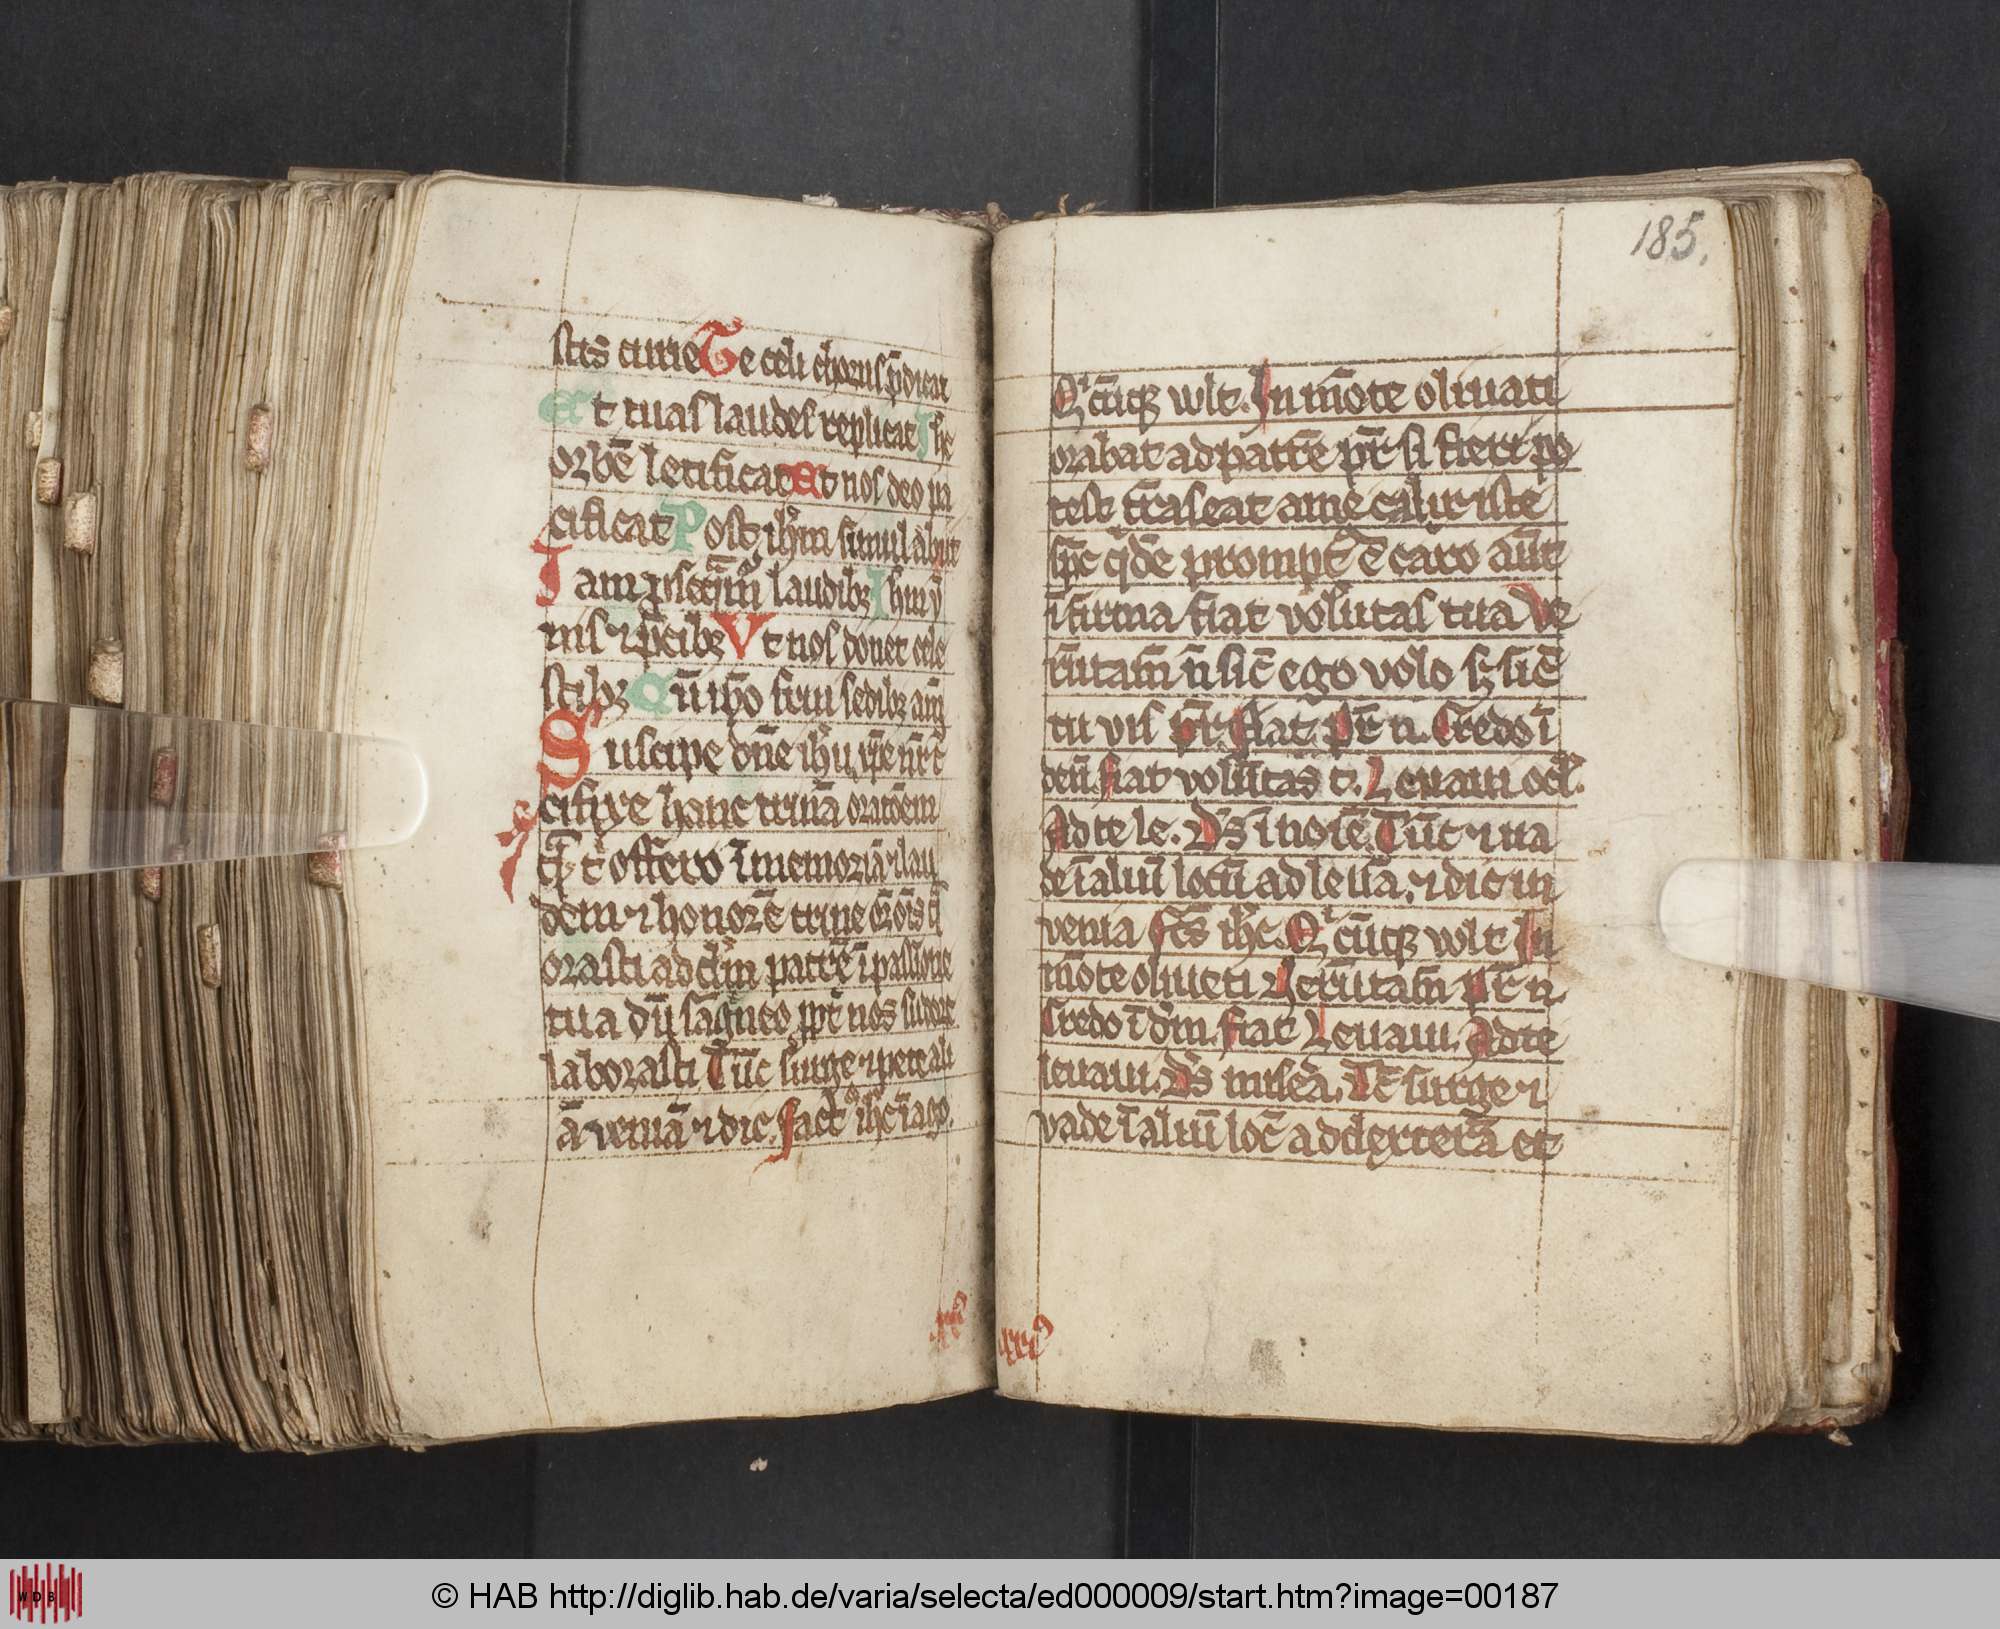 stis curie Te celi chorus p̄dicat
Et tuas laudes replicat Ihc
orbē letificat Et nos deo pa
cificat Post ihm simul abiit
Iam ꝓseq̄m̄ laudibꝫ Ihm ȳ
nis ⁊ p̄cibꝫ Ut nos donet cele
stibꝫ Cū ih̄o frui sedibꝫ am̄
Suscipe dn̄e ihū xp̄e
cifixe hanc trinā orōem
offero ī memoriā ⁊ lau
dem ⁊ honorē trine
orasti ad patrē ī passione
tua nos sudore
laborasti Tūc surge ⁊ pete ali
ā veniā ⁊ dic. ihc ī ago.
185.
Qicūqꝫ wlt. In mōte oliuati
orabat ad patrē pr̄ si fieri po
test trāseat a me calix iste
sp̄c qdē prompt⁹ ē caro aūt
ī firma fiat volūtas tua Ve
rūtam̄ n̄ sic̄ ego volo sꝫ sic̄
tu vis pr̄. fiat. Pr̄ n. Credo ī
deū. fiat volūtas t. Leuaui ocl̄.
Ad te le. Ds̄ ī noīe. Tūc ⁊ ua
de ī aliū locū ad sellā. ⁊ dic in
venia Scs̄ ihc. Qicūqꝫ wlt In
mōte oliueti Verūtam̄ Pr̄ n.
Credo ī dm̄. fiat Leuaui. Ad te
leuaui. Ds̄ miserā. Tc̄ surge ⁊
vade ī aliū loc̄ ad dexterā et
© HAB http://diglib.hab.de/varia/selecta/ed000009/start.htm?image=00187
WDB